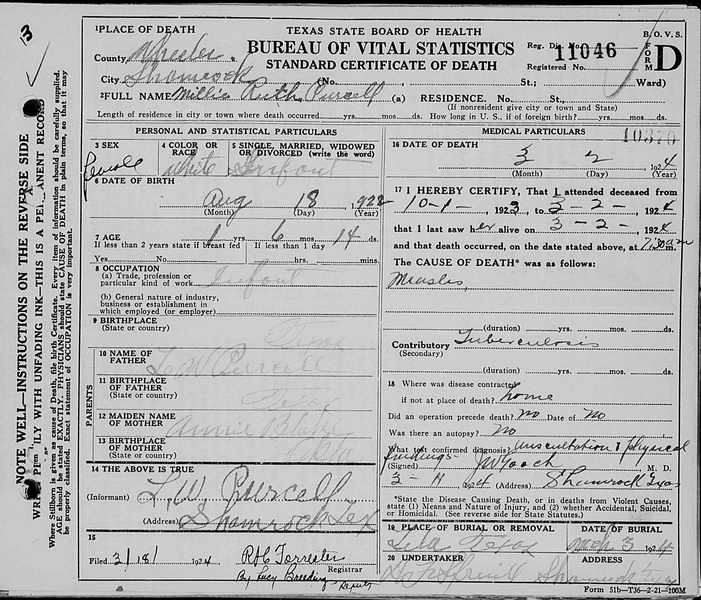 3
¹PLACE OF DEATH
TEXAS STATE BOARD OF HEALTH
BUREAU OF VITAL STATISTICS
STANDARD CERTIFICATE OF DEATH
B. O. V. S.
FORM D
Reg. Dis. No. 11046
Registered No.
County Wheeler
City Shamrock (No. St.; Ward)
²FULL NAME Millie Ruth Purcell (a) RESIDENCE. No. St.,
(If nonresident give city or town and State)
Length of residence in city or town where death occurred yrs. mos. ds. How long in U. S., if of foreign birth? yrs. mos. ds.
PERSONAL AND STATISTICAL PARTICULARS
3 SEX
Female
4 COLOR OR RACE
White
5 SINGLE, MARRIED, WIDOWED OR DIVORCED (write the word)
Infant
6 DATE OF BIRTH
Aug 18, 1922
(Month) (Day) (Year)
7 AGE 1 yrs 6 mos 14 ds.
If less than 2 years state if breast fed If less than 1 day
Yes No hrs. mins.
8 OCCUPATION
(a) Trade, profession or particular kind of work Infant
(b) General nature of industry, business or establishment in which employed (or employer)
9 BIRTHPLACE
(State or country)
PARENTS
10 NAME OF FATHER L W Purcell
11 BIRTHPLACE OF FATHER
(State or country)
12 MAIDEN NAME OF MOTHER Annie
13 BIRTHPLACE OF MOTHER
(State or country)
14 THE ABOVE IS TRUE
(Informant) L. W. Purcell
(Address) Shamrock Tex
15
Filed 3/18/ 1924
By Lucy Breeding Deputy
Registrar
MEDICAL PARTICULARS
10370
16 DATE OF DEATH
3 2, 1924
(Month) (Day) (Year)
17 I HEREBY CERTIFY, That I attended deceased from
10-1-, 1923, to 3-2-, 1924
that I last saw her alive on 3-2-, 1924
and that death occurred, on the date stated above, at 7:30 am
The CAUSE OF DEATH* was as follows:
Measles,
(duration) yrs. mos. ds.
Contributory Tuberculosis
(Secondary)
(duration) yrs. mos. ds.
18 Where was disease contracted
if not at place of death? home
Did an operation precede death? No Date of No
Was there an autopsy? No
What test confirmed diagnosis? Auscultation & physical
findings
(Signed) M. D.
3-11 1924 (Address) Shamrock Texas
*State the Disease Causing Death, or in deaths from Violent Causes, state (1) Means and Nature of Injury, and (2) whether Accidental, Suicidal, or Homicidal. (See reverse side for State Statutes.)
19 PLACE OF BURIAL OR REMOVAL
Texas
DATE OF BURIAL
Mch 3 1924
20 UNDERTAKER
Shamrock
Form 51b—T36—2-21—100M
NOTE WELL—INSTRUCTIONS ON THE REVERSE SIDE
WRITE PLAINLY WITH UNFADING INK—THIS IS A PERMANENT RECORD
Where Stillborn is given as cause of Death, file birth Certificate. Every item of information should be carefully supplied. AGE should be stated EXACTLY. PHYSICIANS should state CAUSE OF DEATH in plain terms, so that it may be properly classified. Exact statement of OCCUPATION is very important.